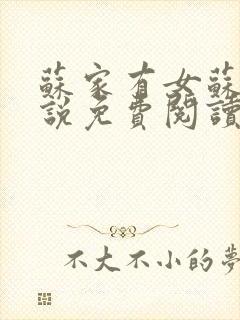 蘇家有女蘇
說免費閱讀
不大不小的夢